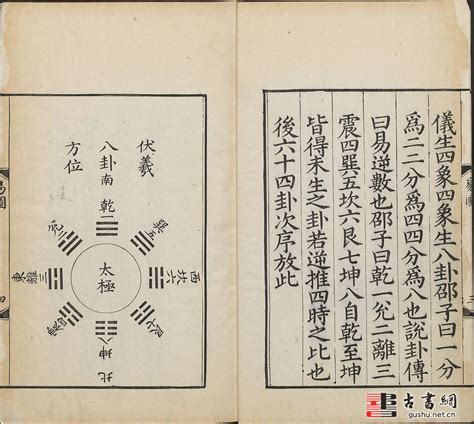 儀生四象四象生八卦邵子曰一分
爲二二分爲四四分爲八也說卦傳
曰易逆數也邵子曰乾一兌二離三
震四巽五坎六艮七坤八自乾至坤
皆得未生之卦若逆推四時之比也
後六十四卦次序放此
伏羲
八卦
方位
南
乾一
巽五
西
坎六
艮七
北
坤八
震四
東
離三
兌二
太極
易圖
四
古書網
gushu.net.cn